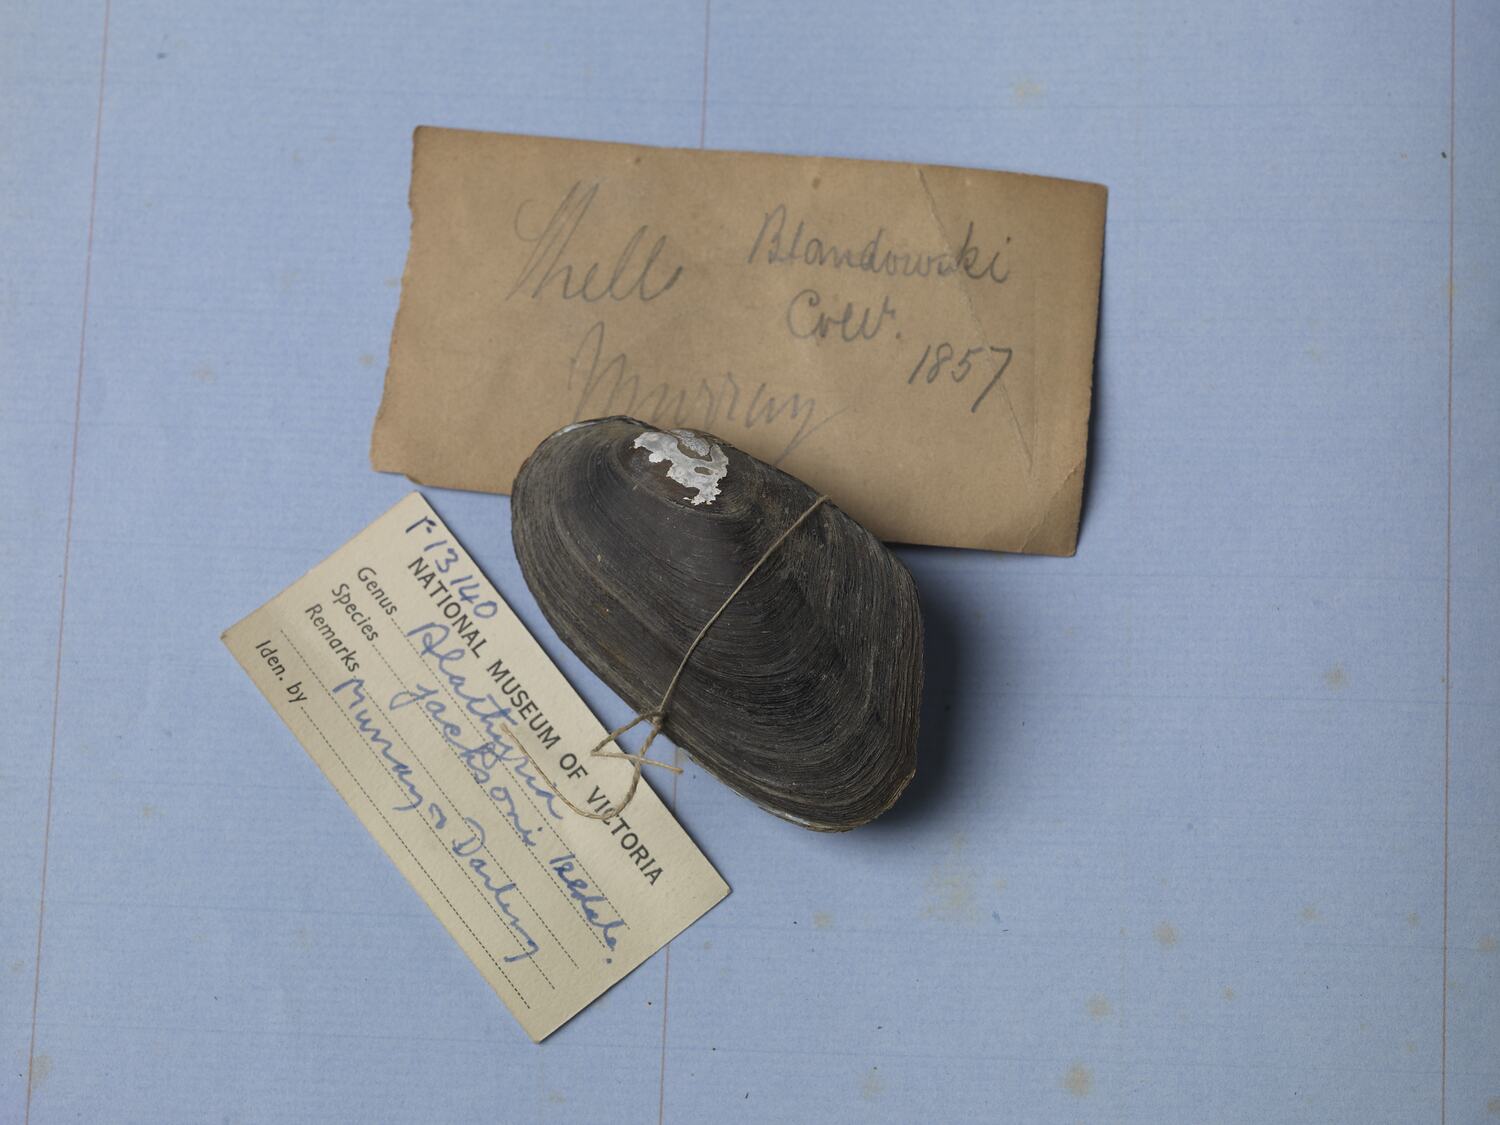 Shell
Murray
Blandowski
Coll.
1857
F13140
NATIONAL MUSEUM OF VICTORIA
Genus Alathyria
Species jacksoni Iredale.
Remarks Murray & Darling
Iden. by